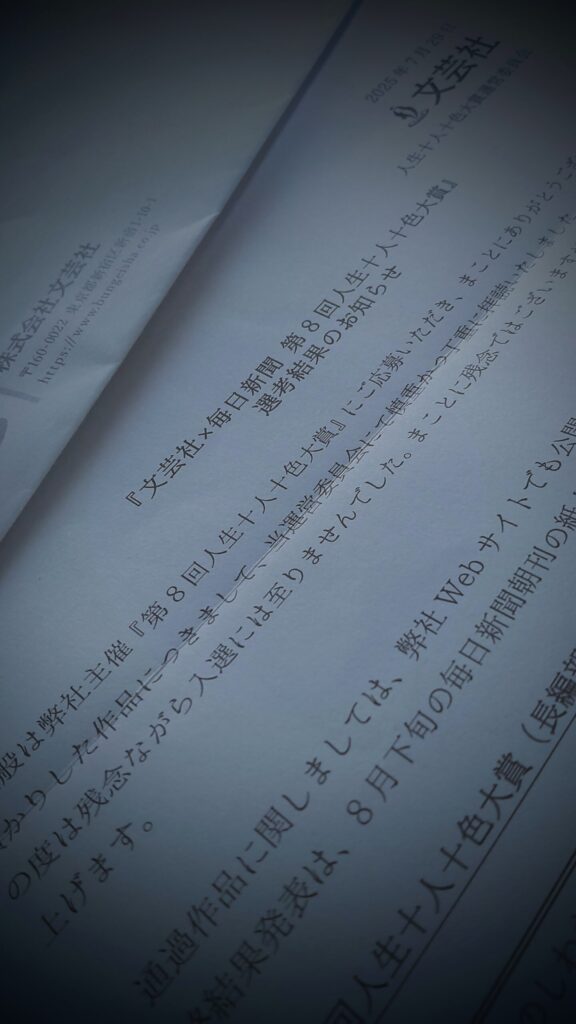 株式会社文芸社
〒160-0022 東京都新宿区新宿1-10-1
https://www.bungeisha.co.jp
2025年7月29日
文芸社
人生十人十色大賞運営委員会
『文芸社×毎日新聞 第8回人生十人十色大賞』
選考結果のお知らせ
般は弊社主催『第8回人生十人十色大賞』にご応募いただき、まことにありがとうござ
かりした作品につきまして、当運営委員会にて慎重かつ丁重に拝読いたしました
の度は残念ながら入選には至りませんでした。まことに残念ではございます
上げます。
通過作品に関しましては、弊社Webサイトでも公開
終結果発表は、8月下旬の毎日新聞朝刊の紙
回人生十人十色大賞（長編部